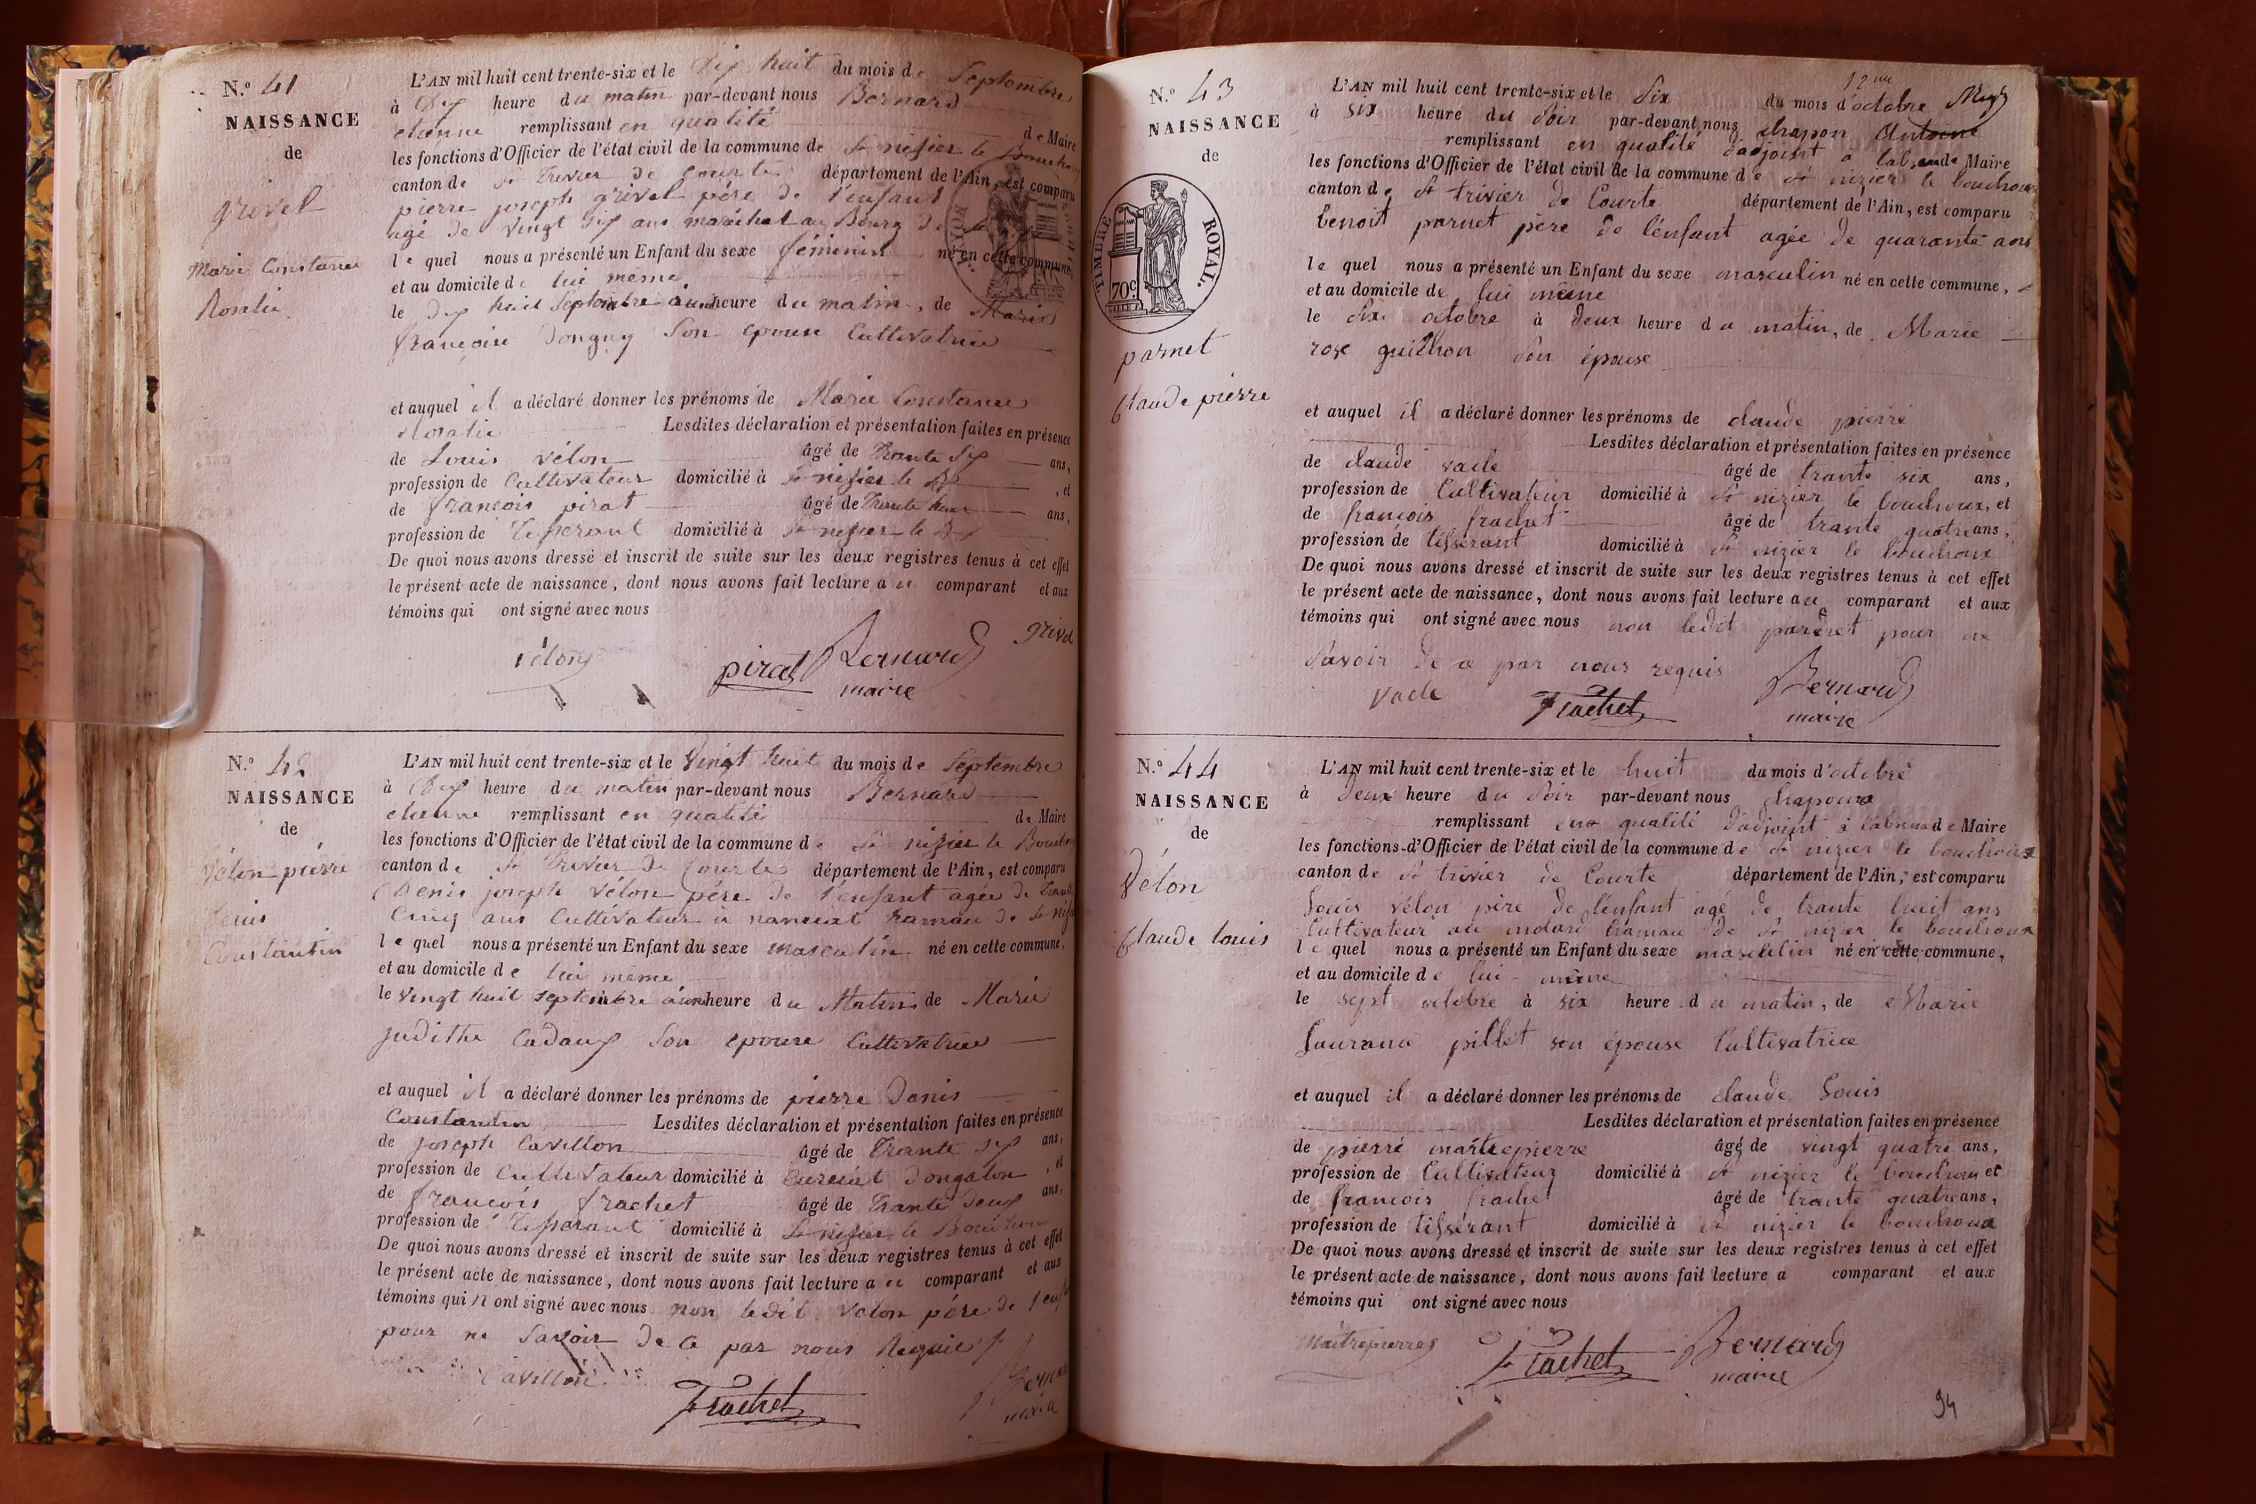 N.° 41
NAISSANCE
de
grivel
Marie Constance
Rosalie
L'AN mil huit cent trente-six et le Dix huit du mois de Septembre
à Dix heure du matin par-devant nous Bernard
etienne remplissant en qualité de Maire
les fonctions d'Officier de l'état civil de la commune de St nisier le
canton de St trivier de Courte département de l'Ain, est comparu
pierre joseph grivel père de l'enfant
agé de vingt Dix ans maréchal au Bourg
le quel nous a présenté un Enfant du sexe féminin né en cette commune,
et au domicile de lui meme
le Dix huit Septembre à heure du matin, de Marie
françoise Dongny Son epouse Cultivatrice
et auquel il a déclaré donner les prénoms de Marie Constance
Rosalie Lesdites déclaration et présentation faites en présence
de Louis vélon âgé de trante ans,
profession de Cultivateur domicilié à St nisier le , et
de françois pirat âgé de ans,
profession de domicilié à St nisier le
De quoi nous avons dressé et inscrit de suite sur les deux registres tenus à cet effet
le présent acte de naissance, dont nous avons fait lecture au comparant et aux
témoins qui ont signé avec nous
vélon pirat Bernard grivel
maire
N.° 42
NAISSANCE
de
vélon pierre
Constantin
L'AN mil huit cent trente-six et le vingt huit du mois de Septembre
à Dix heure du matin par-devant nous Bernard
etienne remplissant en qualité de Maire
les fonctions d'Officier de l'état civil de la commune de St nisier le
canton de St trivier de Courtes département de l'Ain, est comparu
Denis joseph vélon père de l'enfant agée de
Cinq ans Cultivateur à hamau de St
le quel nous a présenté un Enfant du sexe masculin né en cette commune,
et au domicile de lui meme
le vingt huit septembre à heure du Matin de Marie
judithe Cadaux Son epouse Cultivatrice
et auquel il a déclaré donner les prénoms de pierre Denis
Constantin Lesdites déclaration et présentation faites en présence
de joseph Cavillon âgé de trante ans,
profession de Cultivateur domicilié à Curciat Dongalon , et
de françois frachet âgé de trante Deux ans,
profession de domicilié à St nisier le
De quoi nous avons dressé et inscrit de suite sur les deux registres tenus à cet effet
le présent acte de naissance, dont nous avons fait lecture au comparant et aux
témoins qui ont signé avec nous non ledit velon père de
pour ne Savoir de ce par nous Requis
Cavillon Frachet
N.° 43
NAISSANCE
de
TIMBRE ROYAL.
70c.
parnet
Claude pierre
L'AN mil huit cent trente-six et le Six du mois d'octobre
à six heure du Soir par-devant nous chapon Antoine
remplissant en qualité d'adjoint a de Maire
les fonctions d'Officier de l'état civil de la commune de St nizier le bouchoux
canton de St trivier de Courte département de l'Ain, est comparu
benoit parnet père de l'enfant agée de quarante ans
le quel nous a présenté un Enfant du sexe masculin né en cette commune,
et au domicile de lui même
le Six octobre à deux heure du matin, de Marie
rose guillon son épouse
et auquel il a déclaré donner les prénoms de claude pierre
Lesdites déclaration et présentation faites en présence
de claude vacle âgé de trante six ans,
profession de Cultivateur domicilié à St nizier le bouchoux, et
de francois frachet âgé de trante quatre ans,
profession de tisserant domicilié à St nizier le bouchoux
De quoi nous avons dressé et inscrit de suite sur les deux registres tenus à cet effet
le présent acte de naissance, dont nous avons fait lecture au comparant et aux
témoins qui ont signé avec nous non ledit pour ne
Savoir de ce par nous requis
vacle Frachet Bernard
maire
N.° 44
NAISSANCE
de
Vélon
Claude louis
L'AN mil huit cent trente-six et le huit du mois d'octobre
à Deux heure du Soir par-devant nous
remplissant en qualité d'adjoint à de Maire
les fonctions d'Officier de l'état civil de la commune de St nizier le bouchoux
canton de St trivier de Courte département de l'Ain, est comparu
Louis vélon père de l'enfant agé de trante huit ans
Cultivateur au molard hamau de St nizier le bouchoux
le quel nous a présenté un Enfant du sexe masculin né en cette commune,
et au domicile de lui même
le sept octobre à six heure du matin, de Marie
Laurance pillet son épouse Cultivatrice
et auquel il a déclaré donner les prénoms de claude Louis
Lesdites déclaration et présentation faites en présence
de pierre maitrepierre âgé de vingt quatre ans,
profession de Cultivateur domicilié à St nizier le bouchoux et
de francois frachet âgé de trante quatre ans,
profession de tisserant domicilié à St nizier le bouchoux
De quoi nous avons dressé et inscrit de suite sur les deux registres tenus à cet effet
le présent acte de naissance, dont nous avons fait lecture a comparant et aux
témoins qui ont signé avec nous
Maitrepierre Frachet Bernard
maire
94